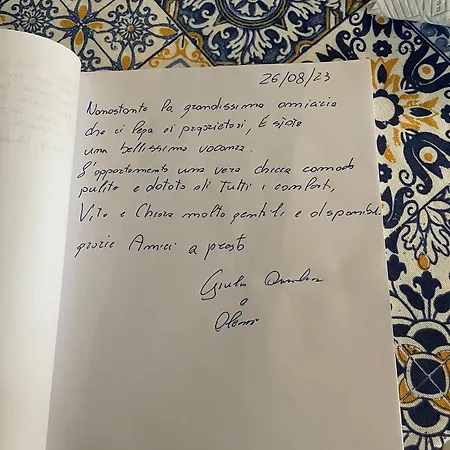 26/08/23
Nonostante la grandissima amicizia
che ci lega ai proprietari, È stata
una bellissima vacanza.
L'appartamento una vera chicca comodo
pulito e dotato di Tutti i comfort,
Vito e Chiara molto gentili e disponibili
grazie Amici a presto
Giulia
e